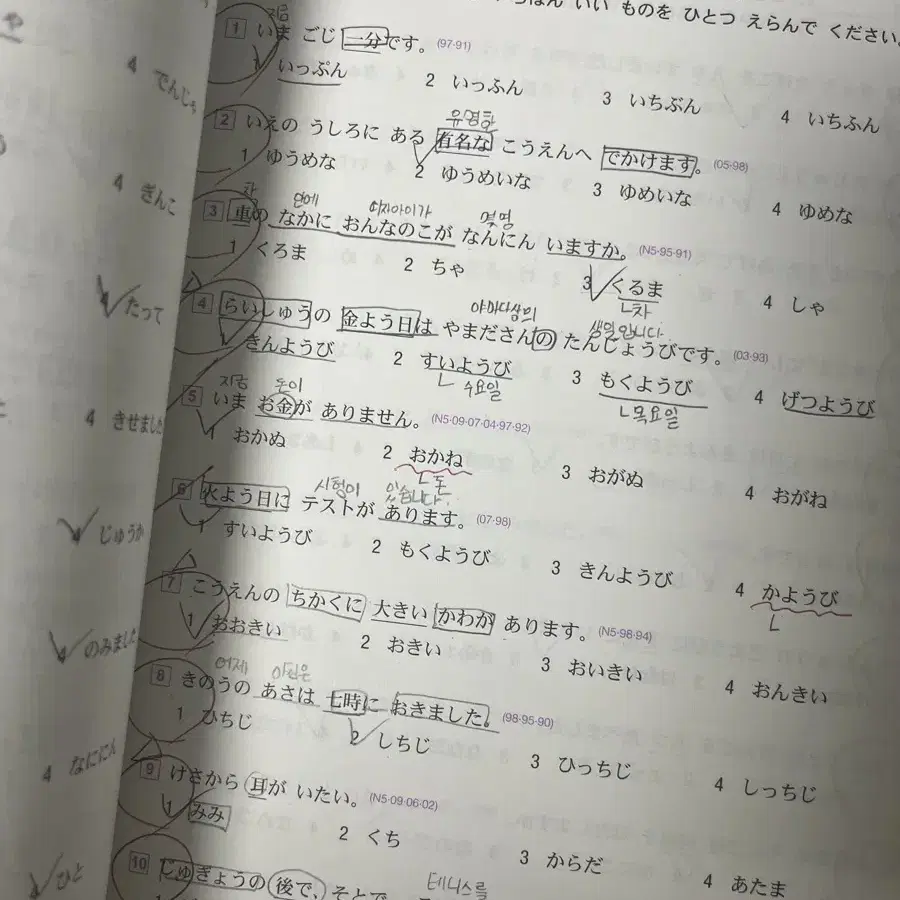 いい ものを ひとつ えらんで ください。
지금
1 いま ごじ 一分です。(97·91)
1 いっぷん 2 いっふん 3 いちぶん 4 いちふん
유명한
2 いえの うしろに ある 有名な こうえんへ でかけます。(05·98)
1 ゆうめな 2 ゆうめいな 3 ゆめいな 4 ゆめな
차 안에 여자아이가 몇명
3 車の なかに おんなのこが なんにん いますか。(N5·95·91)
1 くろま 2 ちゃ 3 くるま 4 しゃ
차
야마다상의 생일입니다.
4 らいしゅうの 金よう日は やまださんの たんじょうびです。(03·93)
1 きんようび 2 すいようび 3 もくようび 4 げつようび
수요일 목요일
지금 돈이
5 いま お金が ありません。(N5·09·07·04·97·92)
1 おかぬ 2 おかね 3 おがぬ 4 おがね
돈
시험이 있습니다.
6 火よう日に テストが あります。(07·98)
1 すいようび 2 もくようび 3 きんようび 4 かようび
7 こうえんの ちかくに 大きい かわが あります。(N5·98·94)
1 おおきい 2 おきい 3 おいきい 4 おんきい
어제 아침은
8 きのうの あさは 七時に おきました。(98·95·90)
1 ひちじ 2 しちじ 3 ひっちじ 4 しっちじ
9 けさから 耳が いたい。(N5·09·06·02)
1 みみ 2 くち 3 からだ 4 あたま
테니스를
10 じゅぎょうの 後で、そとで
や
4 でんしゃ
4 ぎんこ
4 たって
4 きせました
4 じゅうか
4 のみました
4 なににん
4 ひと